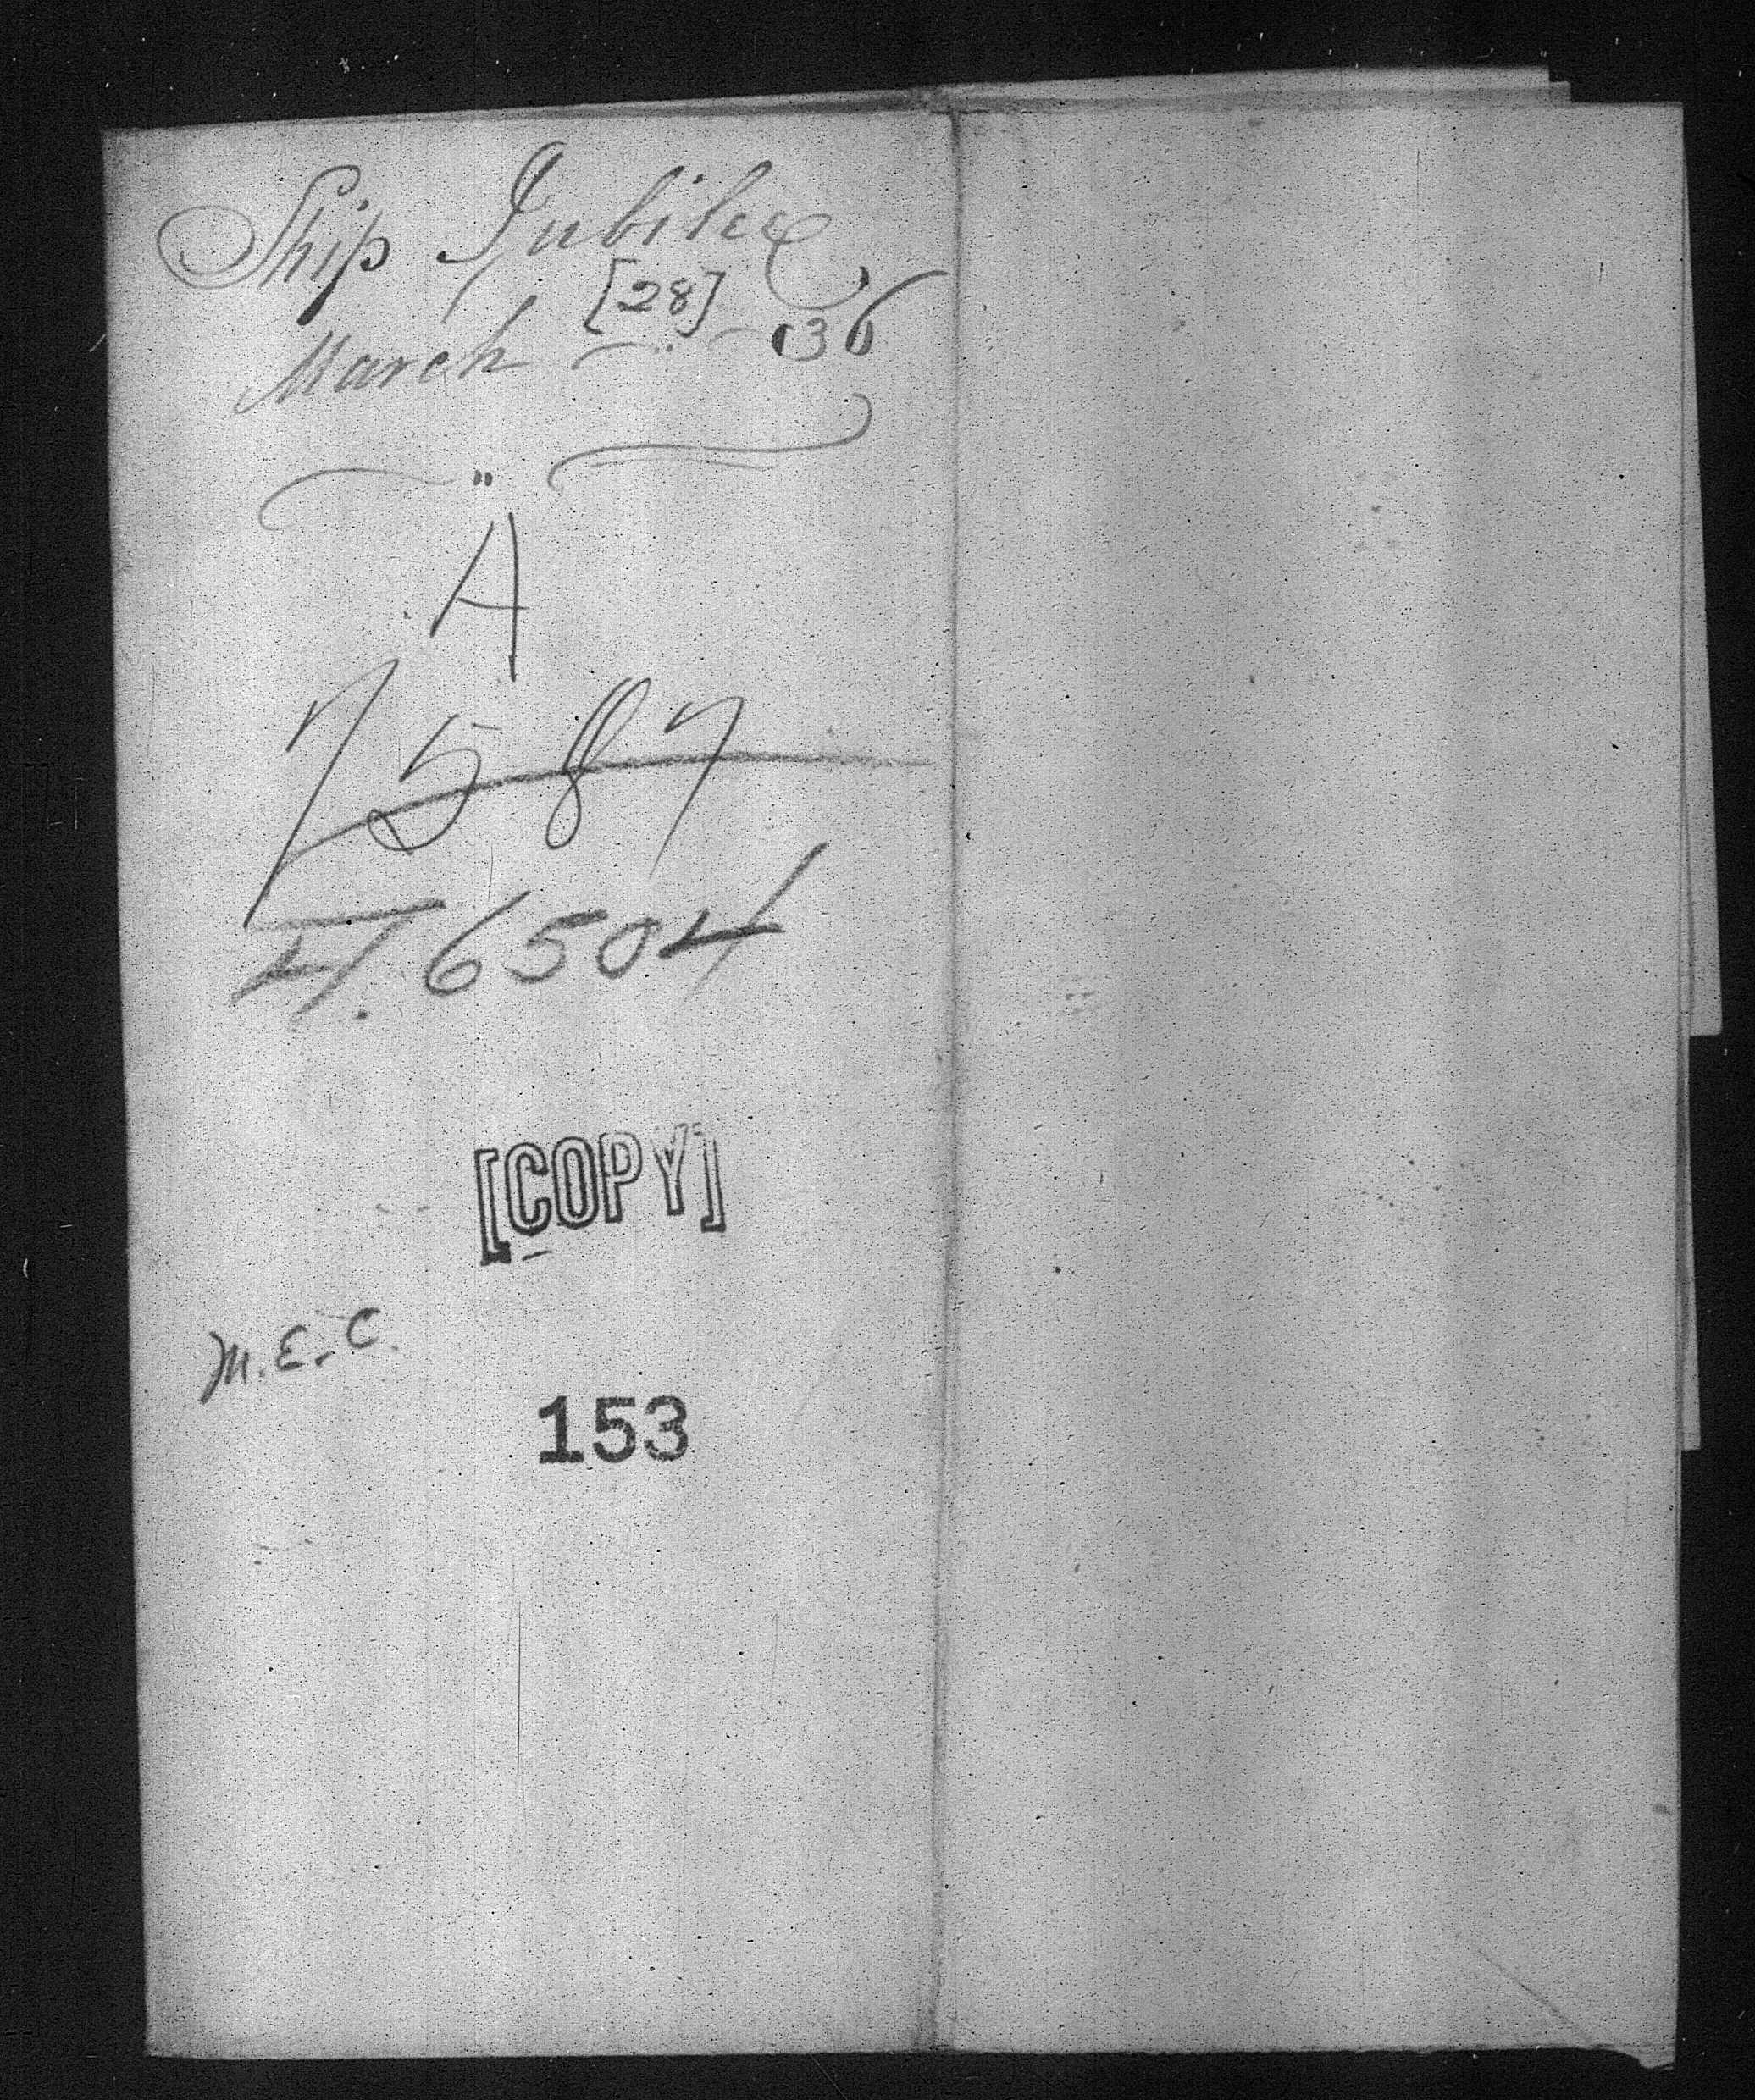 Ship Jubilee
[28]
March 36
A
7587
H. 6504
[COPY]
M.E.C.
153